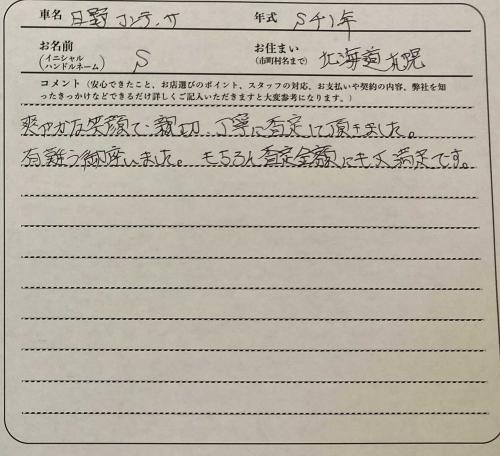 車名 日野 コンテッサ 年式 S41年
お名前 (イニシャル ハンドルネーム) S お住まい (市町村名まで) 北海道札幌
コメント（安心できたこと、お店選びのポイント、スタッフの対応、お支払いや契約の内容、弊社を知
ったきっかけなどできるだけ詳しくご記入いただきますと大変参考になります。）
爽やかな笑顔で、親切、丁寧に査定して頂きました。
有難う御座いました。 もちろん査定金額にも大満足です。